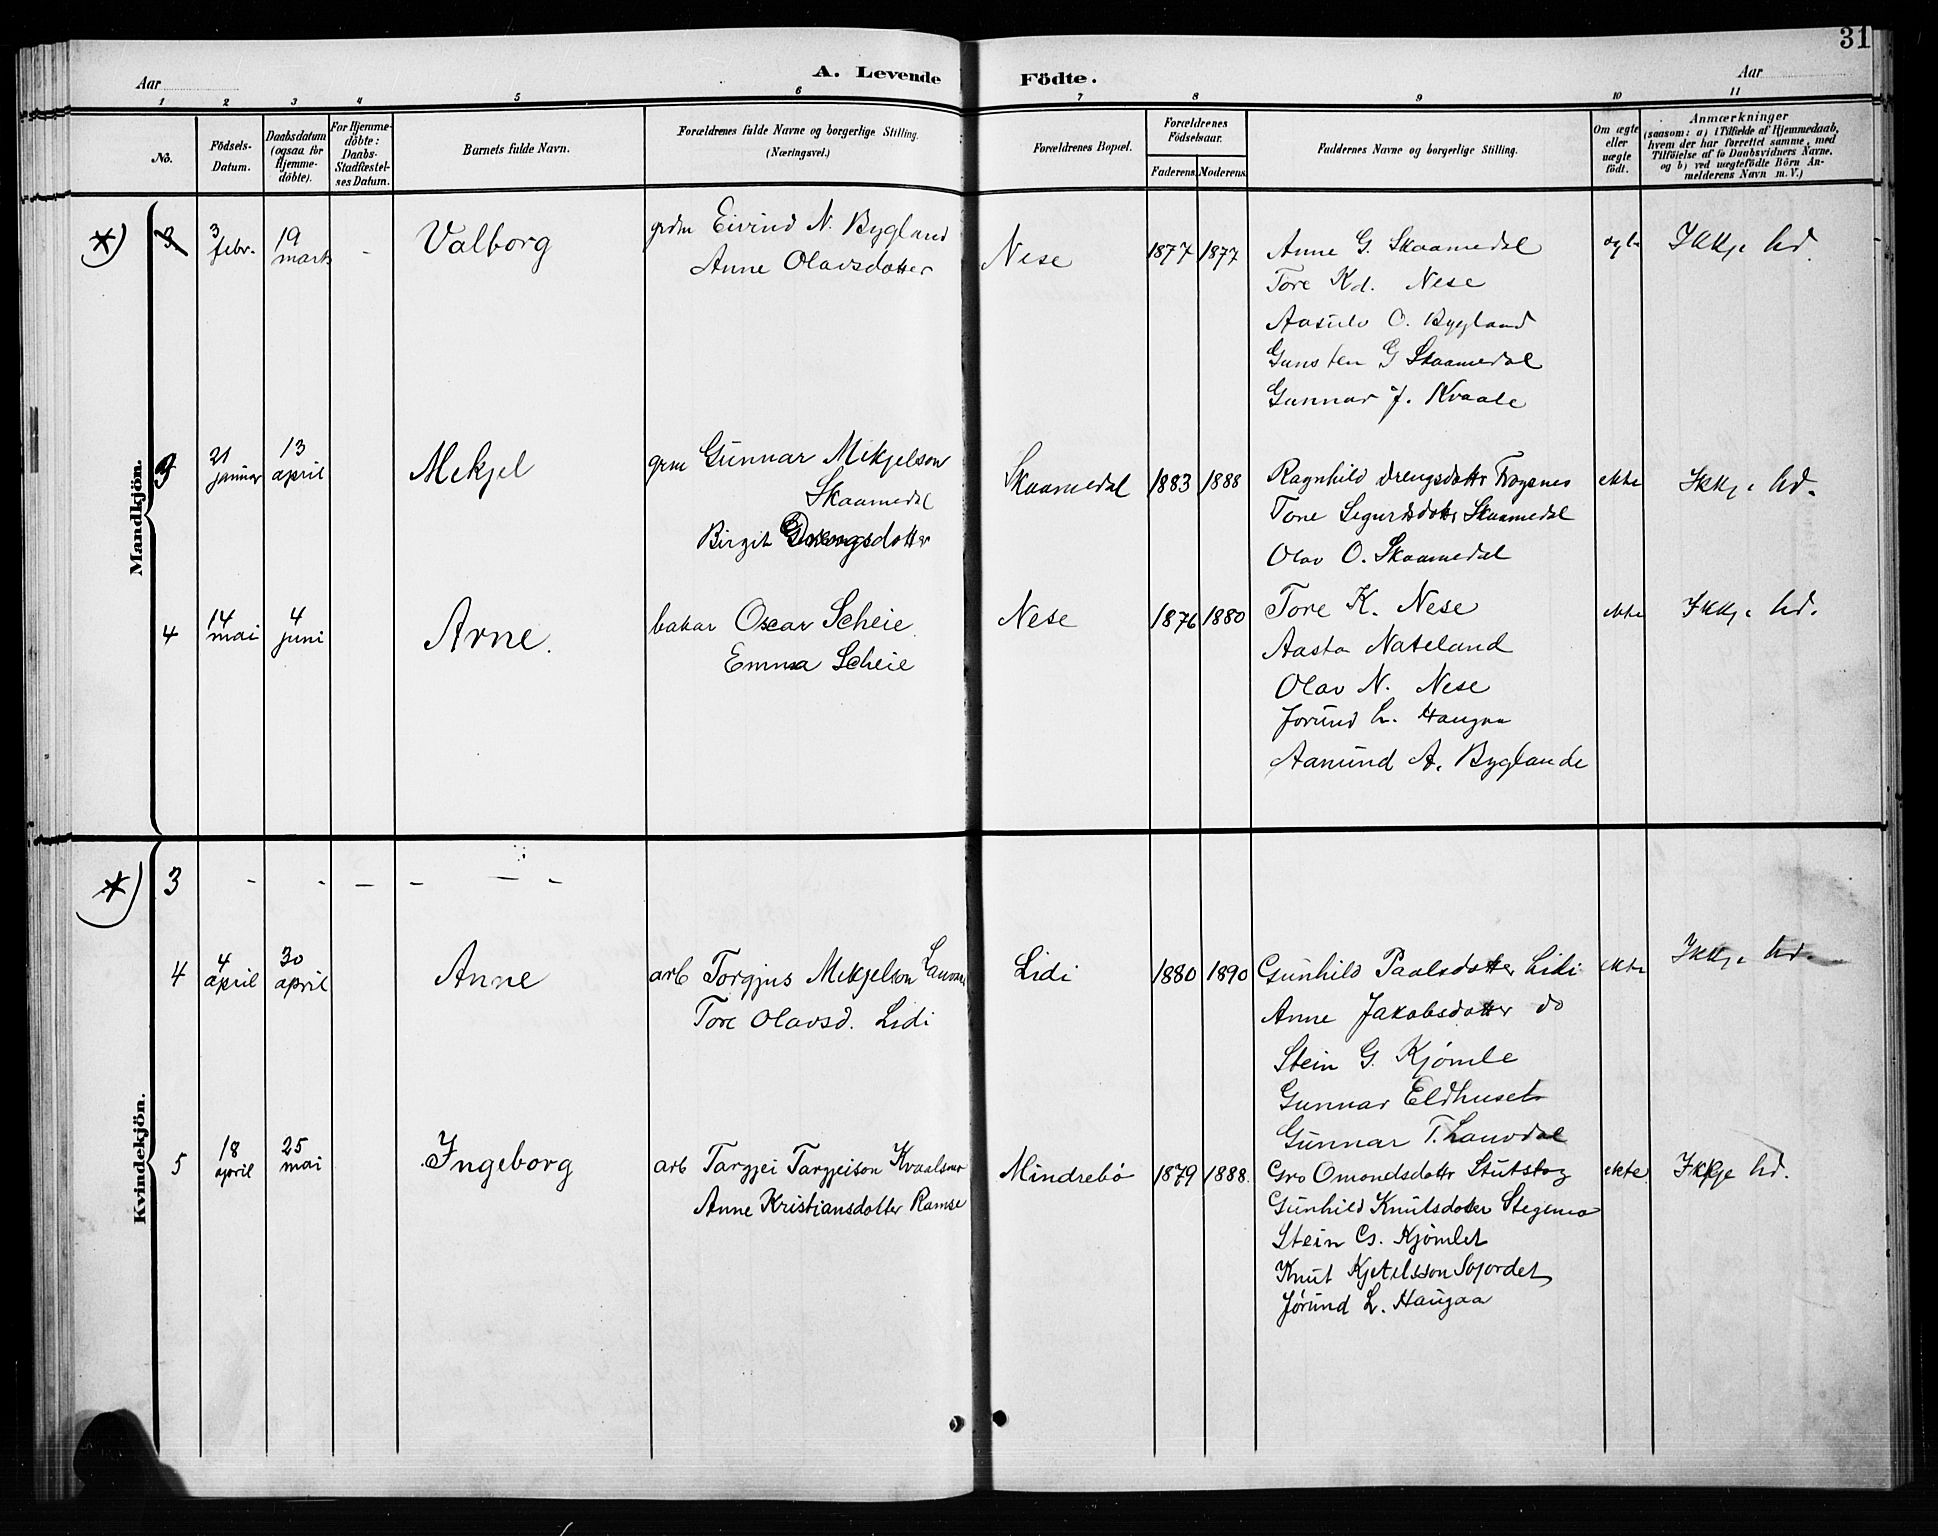 31
Aar
A. Levende Födte.
Aar
1 2 3 4 5 6 7 8 9 10 11
No.
Födsels-
Datum.
Daabsdatum
(ogsaa for
Hjemme-
döbte).
For Hjemme-
döbte:
Daabs-
Stadfæstel-
ses Datum.
Barnets fulde Navn.
Forældrenes fulde Navne og borgerlige Stilling.
(Næringsvei.)
Forældrenes Bopæl.
Forældrenes
Födselsaar.
Faderens. Moderens.
Faddernes Navne og borgerlige Stilling.
Om ægte
eller
uægte
födt.
Anmærkninger
(saasom: a) i Tilfælde af Hjemmedaab,
hvem der har forrettet samme, med
Tilföielse af to Daabsvidners Navne.
og b) ved uægtefödte Börn An-
melderens Navn m. V.)
Mandkjön.
*) 3
3
febr.
19
marts
-
Valborg
grdm Eivind N. Bygland
Anne Olavsdotter
Nese
1877 1877
Anne G. Skaamedal
Tore Kd. Nese
Aasulv O. Bygland
Gunsten G Skaamedal
Gunnar J. Kvaale
Ikkje hd.
3
21
januar
13
april
Mekjel
grm Gunnar Mekjelson
Skaamedal
Birgit Drengsdotter
Skaamedal
1883 1888
Ragnhild Drengsdotter Frøysnes
Tone Sigurdsdotter Skaamedal
Olav O. Skaamedal
ekte
Ikkje hd.
4
14
mai
4
juni
Arne.
bakar Oscar Scheie
Emma Scheie
Nese
1876 1880
Tore K. Nese
Aasta Nateland
Olav N. Nese
Jorund L. Haugaa
Aamund A. Byglande
ekte
Ikkje hd.
Kvindekjön.
*) 3
- - - - - -
4
4
april
30
april
Anne
arb Torgjus Mekjelson
Tore Olavsd. Lidi
Lidi
1880 1890
Gunhild Paalsdotter Lidi
Anne Jakobsdotter do
Stein G. Kjømle
Gunnar Eldhuset
Gunnar T. Lauvdal
ekte
Ikkje hd.
5
18
april
25
mai
Ingeborg
arb Targjei Targjeison
Anne Kristiansdotter Ramse
Mindrebø
1879 1888.
Gro Omondsdotter Stutstog
Gunhild Knutsdotter
Stein Gs. Kjømlet
Knut Kjetilsson
Jørund L. Haugaa
ekte
Ikkje hd.